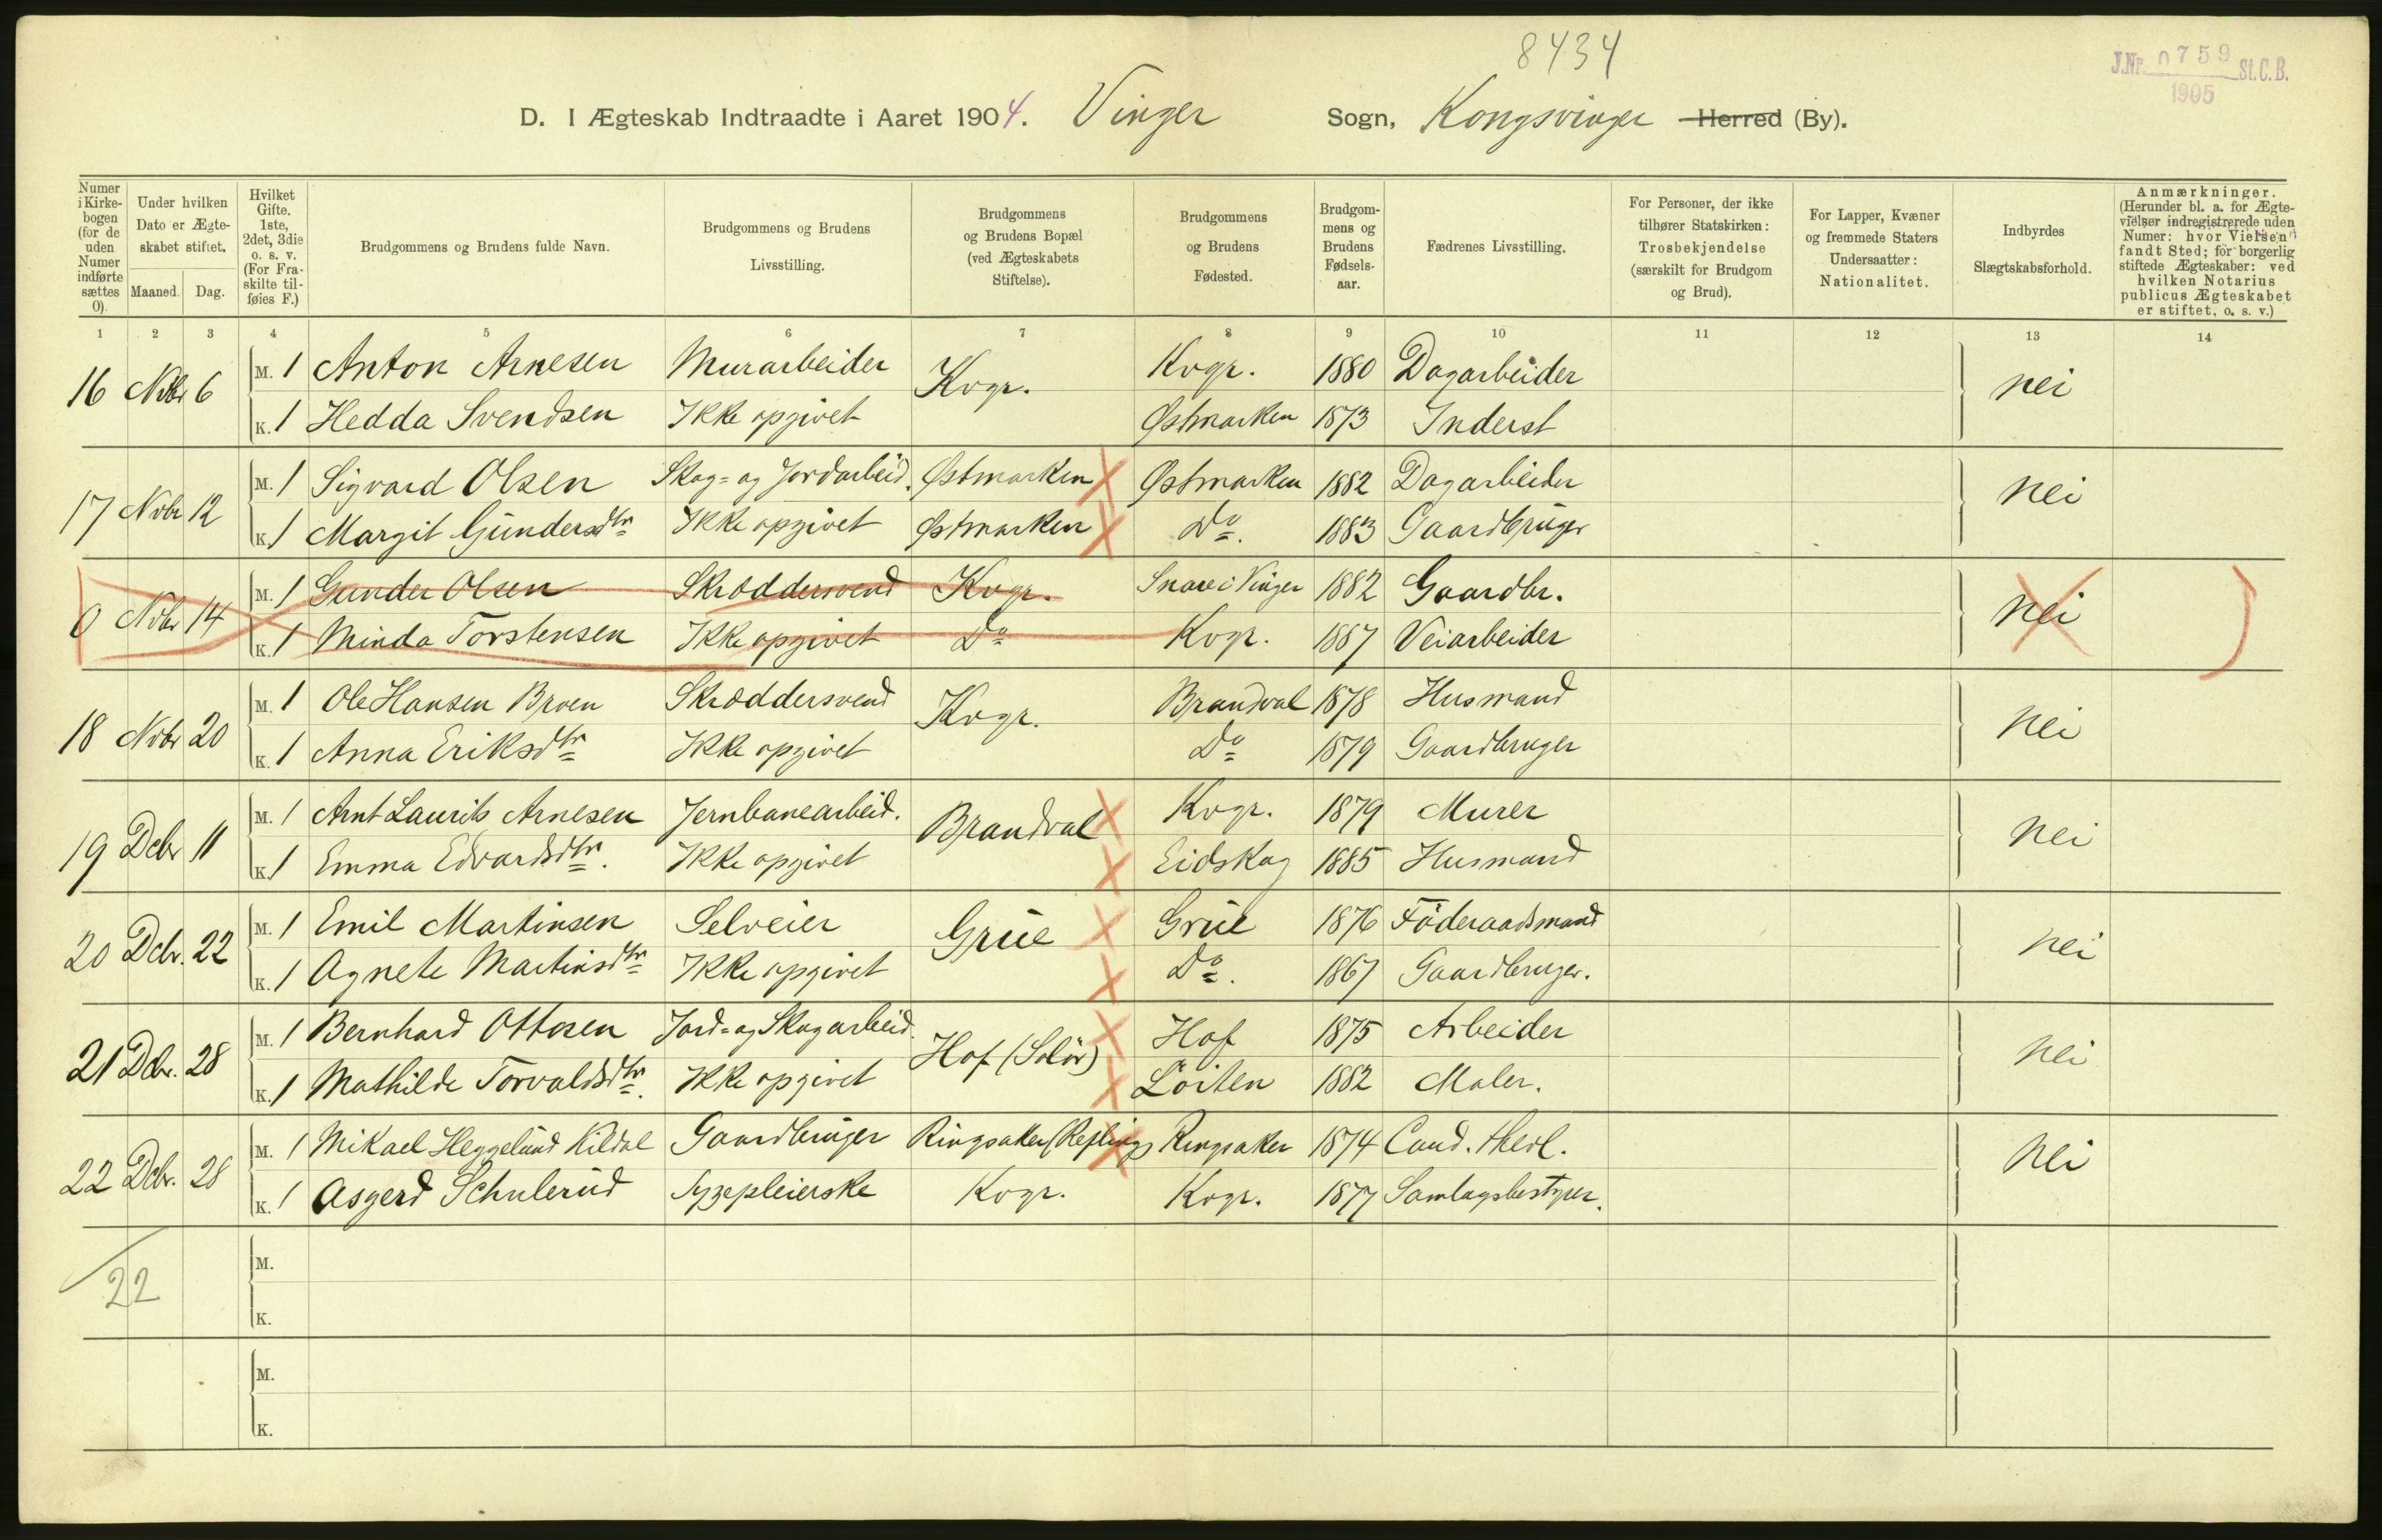 8434
J.Nr. 0759 St.C.B.
1905
D. I Ægteskab Indtraadte i Aaret 1904. Vinger Sogn, Kongsvinger Herred (By).
Numer i Kirkebogen (for de uden Numer indførte sættes 0).
Under hvilken Dato er Ægteskabet stiftet.
Maaned. Dag.
Hvilket Gifte. 1ste, 2det, 3die o. s. v. (For Fraskilte tilføies F.)
Brudgommens og Brudens fulde Navn.
Brudgommens og Brudens Livsstilling.
Brudgommens og Brudens Bopæl (ved Ægteskabets Stiftelse).
Brudgommens og Brudens Fødested.
Brudgommens og Brudens Fødselsaar.
Fædrenes Livsstilling.
For Personer, der ikke tilhører Statskirken: Trosbekjendelse (særskilt for Brudgom og Brud).
For Lapper, Kvæner og fremmede Staters Undersaatter: Nationalitet.
Indbyrdes Slægtskabsforhold.
Anmærkninger. (Herunder bl. a. for Ægtevielser indregistrerede uden Numer: hvor Vielsen fandt Sted; for borgerlig stiftede Ægteskaber: ved hvilken Notarius publicus Ægteskabet er stiftet, o. s. v.)
1 2 3 4 5 6 7 8 9 10 11 12 13 14
16 Nvbr 6 M. 1 Anton Arnesen Murarbeider Kvgr. Kvgr. 1880 Dagarbeider nei
K. 1 Hedda Svendsen Ikke opgivet Østmarken 1873 Inderst
17 Nvbr 12 M. 1 Sigvard Olsen Skog- og Jordarbeid. Østmarken Østmarken 1882 Dagarbeider nei
K. 1 Margit Gundersdtr Ikke opgivet Østmarken Do. 1883 Gaardbruger
0 Nvbr 14 M. 1 Gunder Olsen Skræddersvend Kvgr. Snare i Vinger 1882 Gaardbr. nei
K. 1 Minda Torstensen Ikke opgivet Do Kvgr. 1887 Veiarbeider
18 Nvbr 20 M. 1 Ole Hansen Broen Skræddersvend Kvgr. Brandval 1878 Husmand nei
K. 1 Anna Eriksdtr Ikke opgivet Do 1879 Gaardbruger
19 Dcbr 11 M. 1 Arnt Laurits Arnesen Jernbanearbeid. Brandval Kvgr. 1879 Murer nei
K. 1 Emma Edvardsdtr. Ikke opgivet Eidskog 1885 Husmand
20 Dcbr. 22 M. 1 Emil Martinsen Selveier Grue Grue 1876 Föderaadsmand nei
K. 1 Agnete Martinsdtr Ikke opgivet Do. 1867 Gaardbruger.
21 Dcbr. 28 M. 1 Bernhard Ottosen Jord- og Skogarbeid. Hof (Solör) Hof 1875 Arbeider nei
K. 1 Mathilde Torvaldsdtr. Ikke opgivet Löiten 1882 Maler.
22 Dcbr. 28 M. 1 Mikael Heggelund Kildal Gaardbruger Ringsaker Ringsaker 1874 Cand. theol. nei
K. 1 Asgerd Schulerud Sygepleierske Kvgr. Kvgr. 1877 Samlagsbestyrer.
22
M.
K.
M.
K.